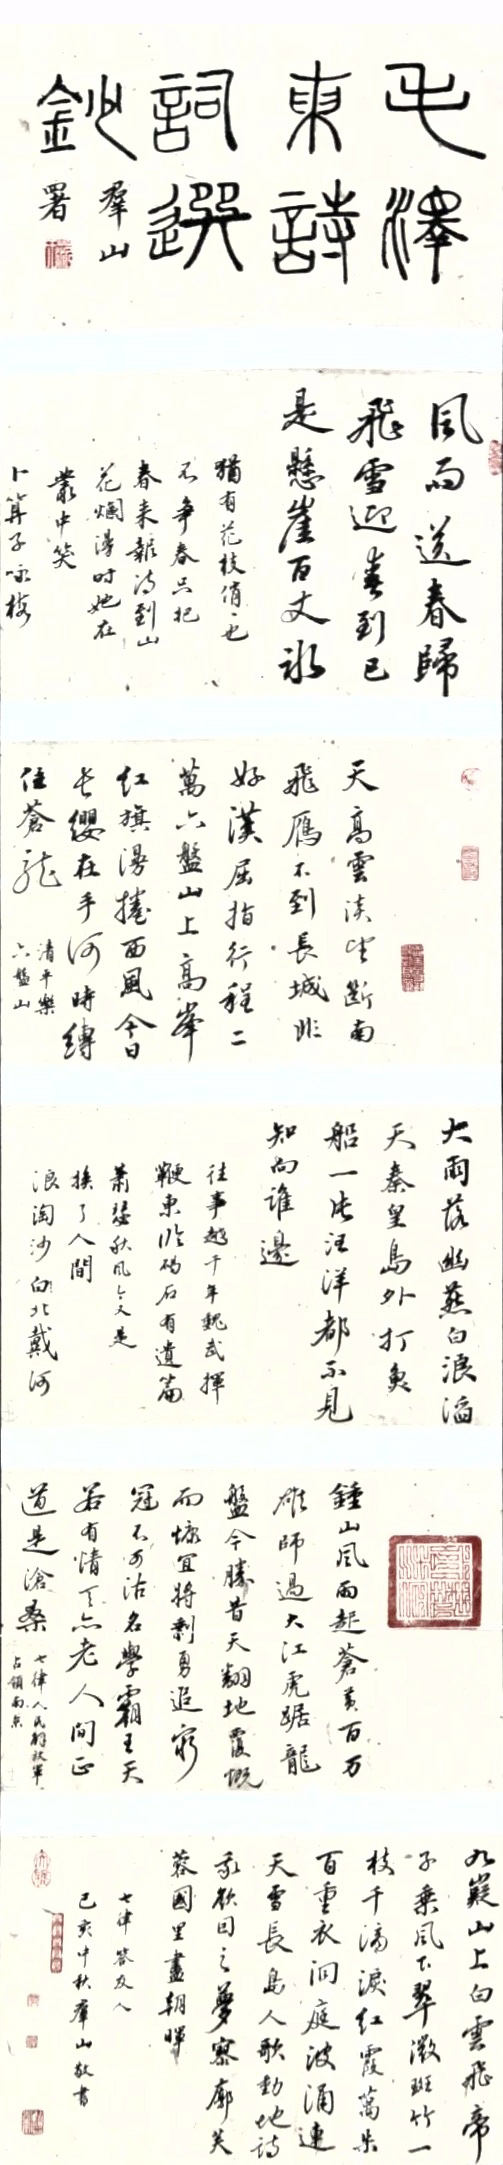 毛澤
東詩
詞選
鈔
羣山
署
風雨送春歸
飛雪迎春到已
是懸崖百丈冰
猶有花枝俏俏也
不争春只把
春来報待到山
花爛漫時她在
叢中笑
卜算子咏梅
天高雲淡望斷南
飛雁不到長城非
好漢屈指行程二
萬六盤山上高峯
红旗漫捲西風今日
長纓在手何時縛
住蒼龍
清平樂
六盤山
大雨落幽燕白浪滔
天秦皇島外打魚
船一片汪洋都不見
知向誰邊
往事越千年魏武揮
鞭東临碣石有遺篇
蕭瑟秋风今又是
换了人間
浪淘沙北戴河
鍾山风雨起蒼黄百万
雄師過大江虎踞龍
盤今勝昔天翻地覆慨
而慷宜将剩勇追窮
冠不可沽名學霸王天
若有情天亦老人間正
道是滄桑
七律人民解放軍
占領南京
九嶷山上白雲飛帝
子乘风下翠微斑竹一
枝千滴淚红霞萬朵
百重衣洞庭波涌連
天雪長島人歌動地詩
我欲因之夢寥廓芙
蓉國里盡朝暉
七律答友人
己亥中秋羣山敬書